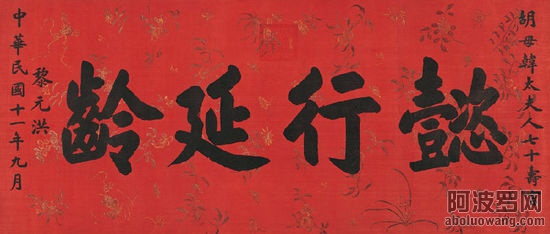 胡母韓太夫人七十壽
懿行延齡
黎元洪
中華民國十一年九月
阿波罗网
aboluowang.com